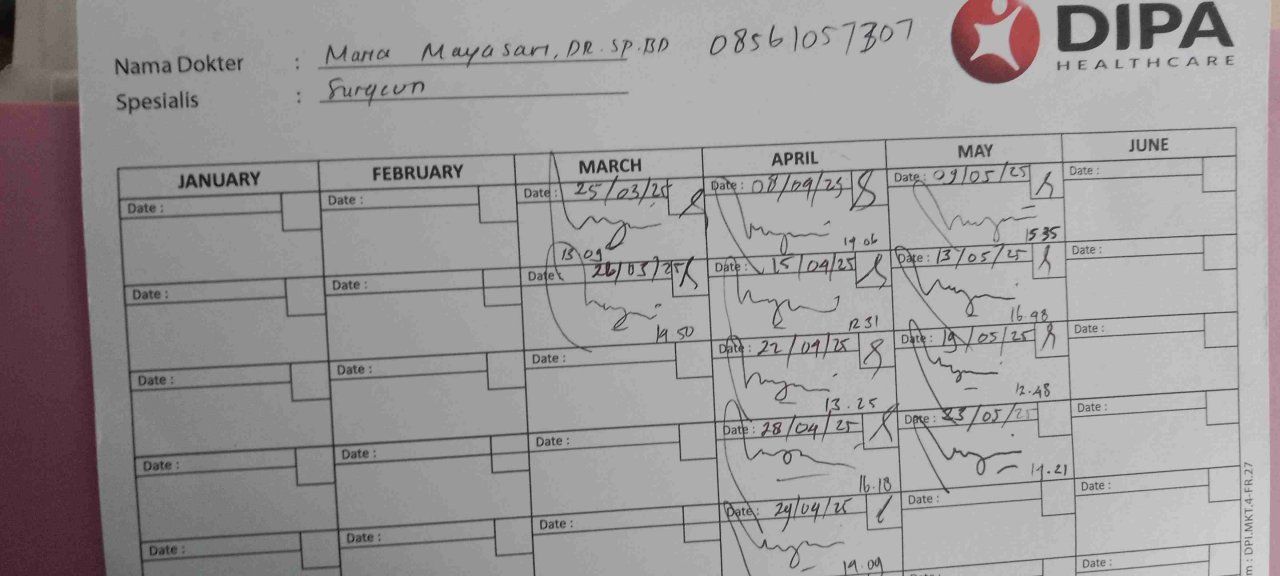 DIPA
HEALTHCARE
Nama Dokter : Maria Mayasari, DR. SP.BD 08561057307
Spesialis : Surgeon
JANUARY FEBRUARY MARCH APRIL MAY JUNE
Date : Date : Date : 25/03/25 Date : 08/04/25 Date : 09/05/25 Date :
13 09 14 06 15 35
Date : Date : Date : 26/03/25 Date : 15/04/25 Date : 13/05/25 Date :
14 50 12 31 16.48
Date : Date : Date : Date : 22/04/25 Date : 19/05/25 Date :
13.25 12.48
Date : Date : Date : Date : 28/04/25 Date : 23/05/25 Date :
16.18 14.21
Date : Date : Date : Date : 29/04/25 Date : Date :
14.09
Date :
m : DPI.MKT.4-FR.27